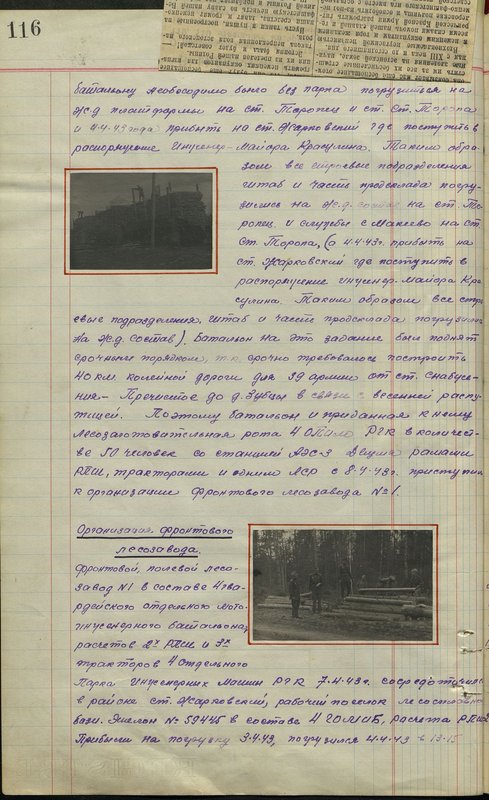 116
батальону необходимо было без парка погрузиться на
ж.д платформы на ст. Торопец и ст. Ст. Торопа
и 4.4.43 года прибыть на ст. Жарковский где поступить в
распоряжение Инженер-Майора Красулина. Таким обра-
зом все строевые подразделения
штаб и часть продсклада погру-
зились на ж.д. состав на ст. То-
ропец и службы с Макеево на ст.
Ст. Торопа, (а 4.4.43г. прибыть на
ст. Жарковский где поступить в
распоряжение инженер-майора Кра-
сулина. Таким образом все стро-
евые подразделения, штаб и часть продсклада погрузились
на ж.д. состав). Батальон на это задание был поднят
срочным порядком, т.к. срочно требовалось построить
40 км. колейной дороги для 39 армии от ст. Снабже-
ния - Пречистое до д. Зубцы в связи с весенней распу-
тицей. Поэтому батальон и приданная к нему
лесозаготовительная рота 4 РГК в количест-
ве 50 человек со станцией АЭС-3 двумя рамами
РПШ, тракторами и одним ЛСР с 8.4.43г. приступил
к организации Фронтового лесозавода №1.
Организация фронтового
лесозавода.
Фронтовой, полевой лесо-
завод №1 в составе 4 гва-
рдейского отдельного мото-
инженерного батальона,
расчетов 2х РПШ и 3х
тракторов 4 отдельного
Парка Инженерных Машин РГК 7.4.43г. сосредоточился
в районе ст. Жарковский, рабочий поселок лесосплавной
базы. Эшелон № 59445 в составе 4 ГОМИБ, расчета РПШ
Прибыли на погрузку 3.4.43, погрузился 4.4.43 в 13-15